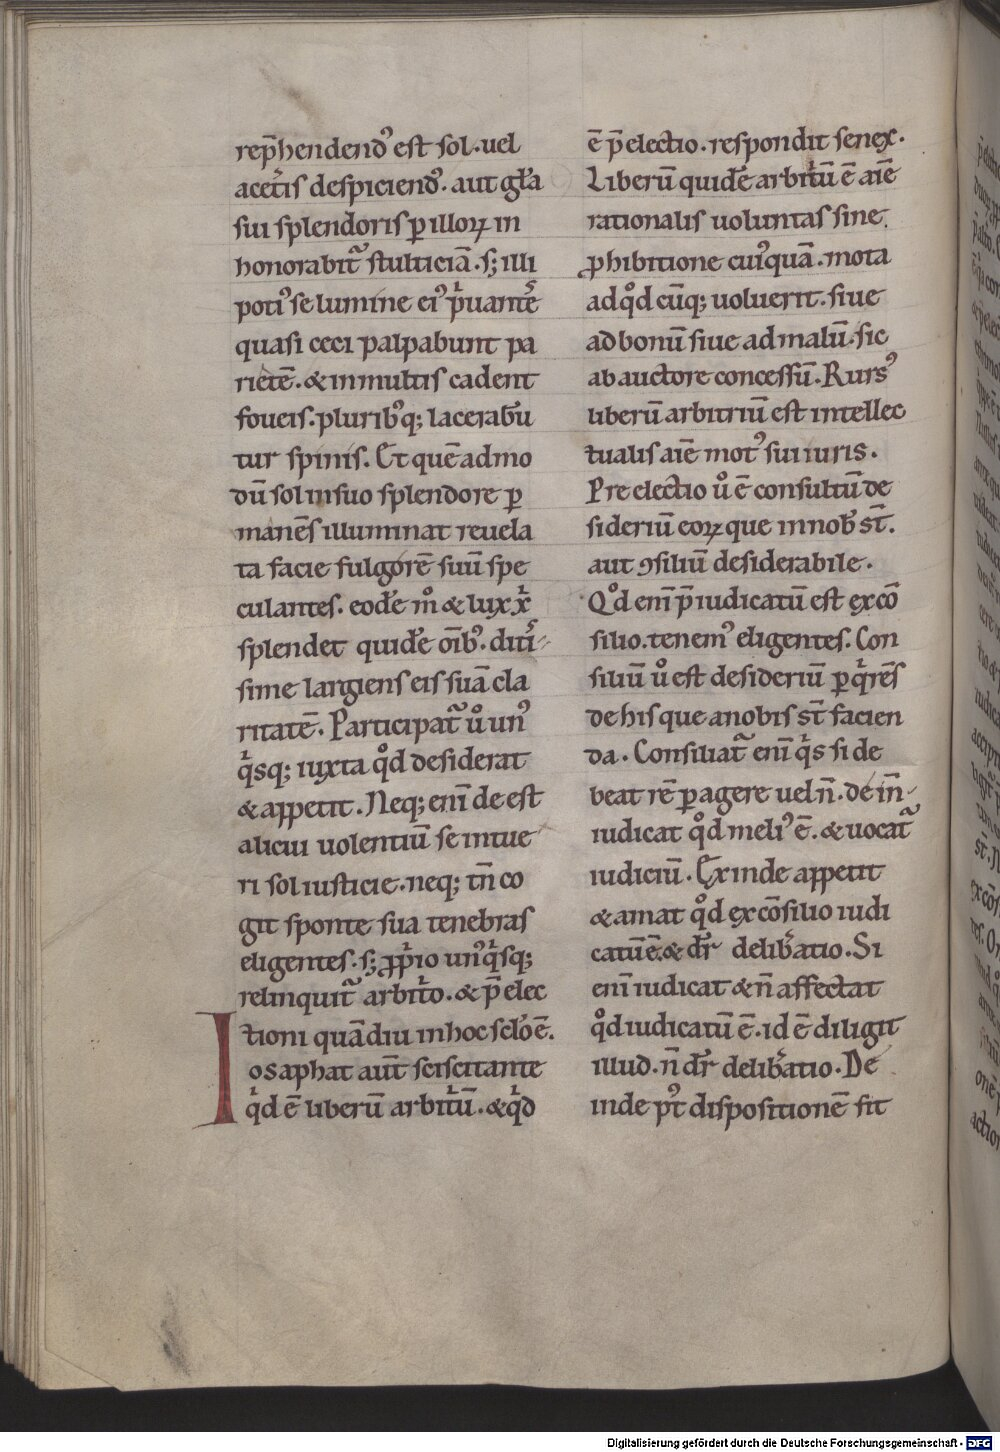 rep̄hendendꝰ est sol. uel
acet᷑is despiciendꝰ. aut gl̄a
sui splendoris ꝑ illoꝝ in
honorabit᷑ stulticiā. s; illi
potiꝰ se lumine eiꝰ pͥuantes
quasi ceci palpabunt pa
rietē. & in multis cadent
foueis. pluribꝰq; lacerabū
tur spinis. Et quēadmo
dū sol in suo splendore ꝑ
manēs illuminat reuela
ta facie fulgorē suū spe
culantes. eodē mͦ & lux xͥ
splendet quidē oīb; ditis
sime largiens eis suā cla
ritatē. Participat᷑ uͦ unꝰ
qͥsq; iuxta qͦd desiderat
& appetit. Neq; enī de est
alicui uolentiū se intue
ri sol iusticie. neq; tn̄ co
git sponte sua tenebras
eligentes. s; ꝓpͥo unꝰqͥsq;
relinquit᷑ arbitͥo. & p̄elec
tioni quādiu in hoc sclō ē.
Iosaphat aut̄ sciscitante
qͥd ē liberū arbitͥū. & qͥd
ē p̄electio. respondit senex.
Liberū quidē arbitͥū ē aīe
rationalis uoluntas sine
ꝓhibitione cuiꝰquā. mota
ad qͦd cūq; uoluerit. siue
ad bonū siue ad malū. sic
ab auctore concessū. Rursꝰ
liberū arbitriū est intellec
tualis aīe motꝰ sui iuris.
Preelectio uͦ ē consultū de
sideriū eoꝝ que in nob̄ st̄.
aut ꝯsiliū desiderabile.
Qͦd enī p̄iudicatū est ex cō
silio. tenemꝰ eligentes. Con
siliū uͦ est desideriū ꝑqͥrēs
de his que a nobis st̄ facien
da. Consiliat᷑ enī qͥs si de
beat rē ꝑagere uel n̄. dein̄
iudicat qͦd meliꝰ ē. & uocat᷑
iudiciū. Exinde appetit
& amat qͦd ex cōsilio iudi
catū ē. & dr̄ delib̄atio. Si
enī iudicat & n̄ affectat
qͦd iudicatū ē. id ē diligit
illud. n̄ dr̄ delib̄atio. De
inde pꝰt dispositionē fit
Digitalisierung gefördert durch die Deutsche Forschungsgemeinschaft - DFG